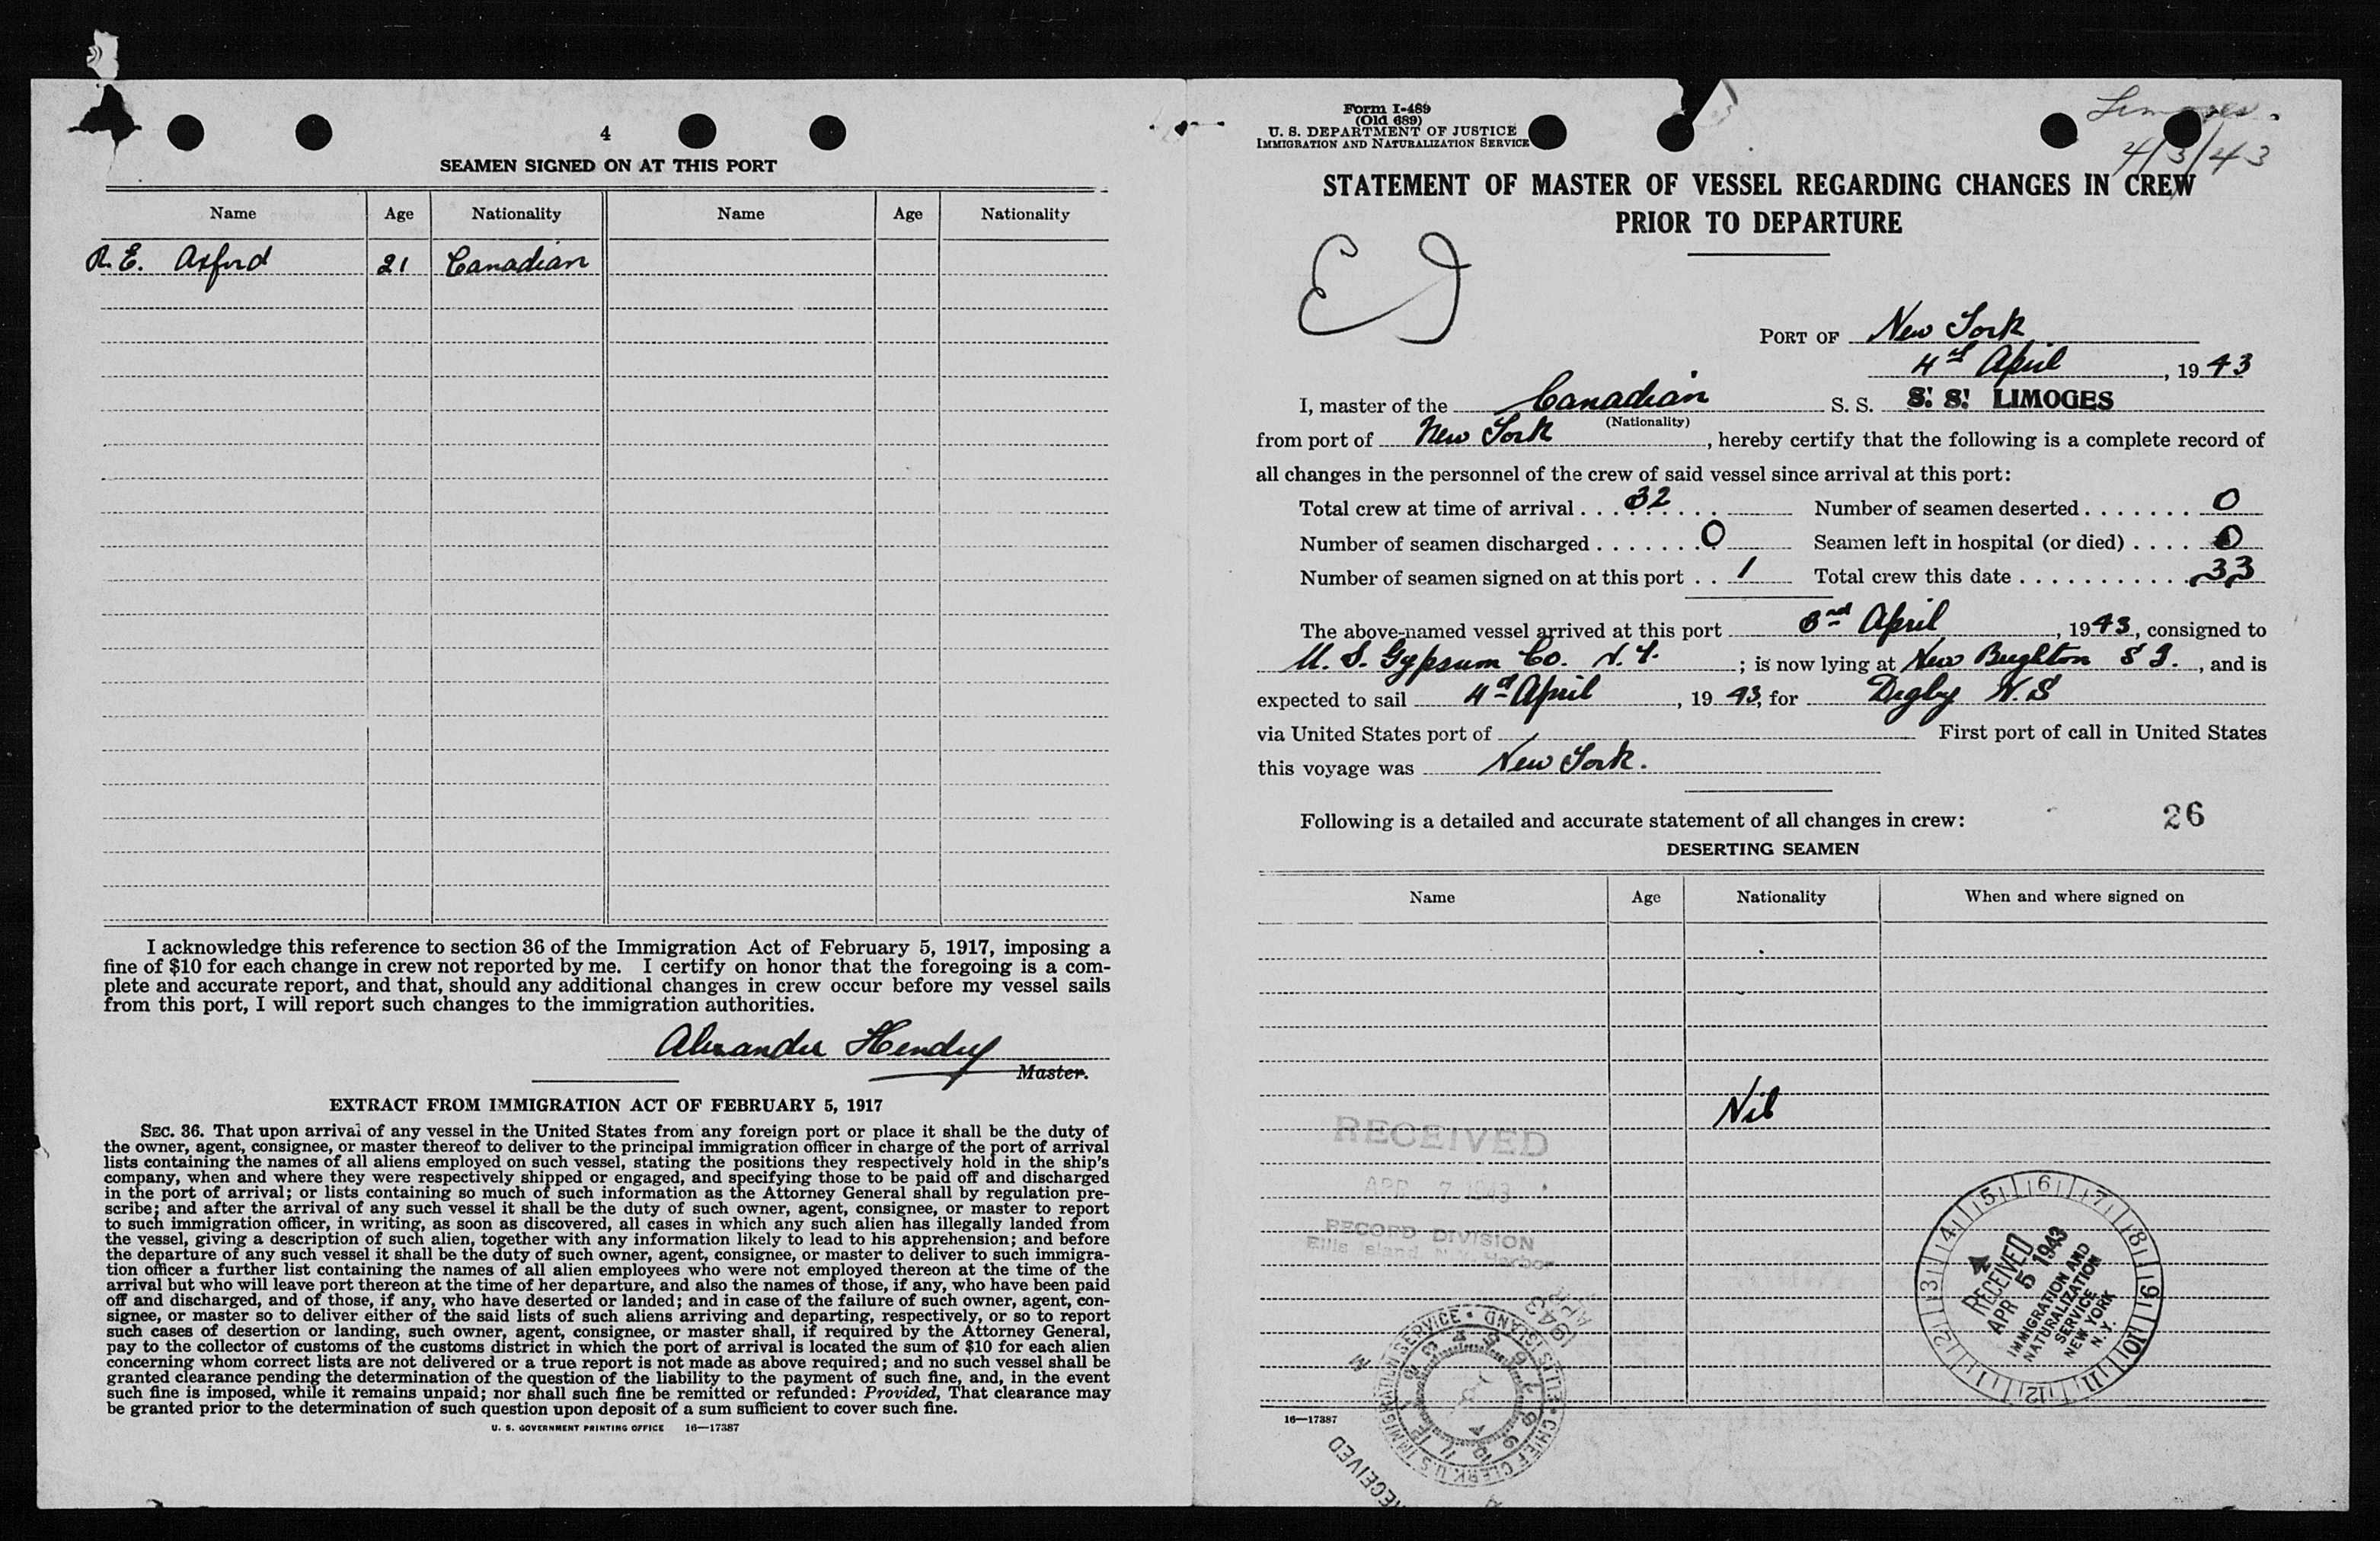 4
SEAMEN SIGNED ON AT THIS PORT
Name Age Nationality Name Age Nationality
R. E. Axford 21 Canadian
I acknowledge this reference to section 36 of the Immigration Act of February 5, 1917, imposing a
fine of $10 for each change in crew not reported by me. I certify on honor that the foregoing is a com-
plete and accurate report, and that, should any additional changes in crew occur before my vessel sails
from this port, I will report such changes to the immigration authorities.
Alexander Hendry
Master.
EXTRACT FROM IMMIGRATION ACT OF FEBRUARY 5, 1917
SEC. 36. That upon arrival of any vessel in the United States from any foreign port or place it shall be the duty of
the owner, agent, consignee, or master thereof to deliver to the principal immigration officer in charge of the port of arrival
lists containing the names of all aliens employed on such vessel, stating the positions they respectively hold in the ship's
company, when and where they were respectively shipped or engaged, and specifying those to be paid off and discharged
in the port of arrival; or lists containing so much of such information as the Attorney General shall by regulation pre-
scribe; and after the arrival of any such vessel it shall be the duty of such owner, agent, consignee, or master to report
to such immigration officer, in writing, as soon as discovered, all cases in which any such alien has illegally landed from
the vessel, giving a description of such alien, together with any information likely to lead to his apprehension; and before
the departure of any such vessel it shall be the duty of such owner, agent, consignee, or master to deliver to such immigra-
tion officer a further list containing the names of all alien employees who were not employed thereon at the time of the
arrival but who will leave port thereon at the time of her departure, and also the names of those, if any, who have been paid
off and discharged, and of those, if any, who have deserted or landed; and in case of the failure of such owner, agent, con-
signee, or master so to deliver either of the said lists of such aliens arriving and departing, respectively, or so to report
such cases of desertion or landing, such owner, agent, consignee, or master shall, if required by the Attorney General,
pay to the collector of customs of the customs district in which the port of arrival is located the sum of $10 for each alien
concerning whom correct lists are not delivered or a true report is not made as above required; and no such vessel shall be
granted clearance pending the determination of the question of the liability to the payment of such fine, and, in the event
such fine is imposed, while it remains unpaid; nor shall such fine be remitted or refunded: Provided, That clearance may
be granted prior to the determination of such question upon deposit of a sum sufficient to cover such fine.
U. S. GOVERNMENT PRINTING OFFICE 16—17387
Form I-489
(Old 689)
U. S. DEPARTMENT OF JUSTICE
IMMIGRATION AND NATURALIZATION SERVICE
Limoges.
4/3/43
STATEMENT OF MASTER OF VESSEL REGARDING CHANGES IN CREW
PRIOR TO DEPARTURE
PORT OF New York
4th April, 1943
I, master of the Canadian S. S. S. S. LIMOGES
(Nationality)
from port of New York, hereby certify that the following is a complete record of
all changes in the personnel of the crew of said vessel since arrival at this port:
Total crew at time of arrival . . . 32 Number of seamen deserted . . . . . . . 0
Number of seamen discharged . . . . . . . 0 Seamen left in hospital (or died) . . . . 0
Number of seamen signed on at this port . . 1 Total crew this date . . . . . . . . . . . 33
The above-named vessel arrived at this port 3rd April, 1943, consigned to
U. S. Gypsum Co. N. Y. ; is now lying at New Brighton S I., and is
expected to sail 4th April, 1943, for Digby N. S
via United States port of First port of call in United States
this voyage was New York.
Following is a detailed and accurate statement of all changes in crew: 26
DESERTING SEAMEN
Name Age Nationality When and where signed on
Nil
RECEIVED
APR 7 1943
RECORD DIVISION
Ellis Island N.Y. Harbor
RECEIVED
APR 5 1943
IMMIGRATION AND
NATURALIZATION
SERVICE
NEW YORK
N. Y.
1943
CHIEF CLERK U.S. IMMIGRATION SERVICE • ELLIS ISLAND
RECEIVED
16—17387